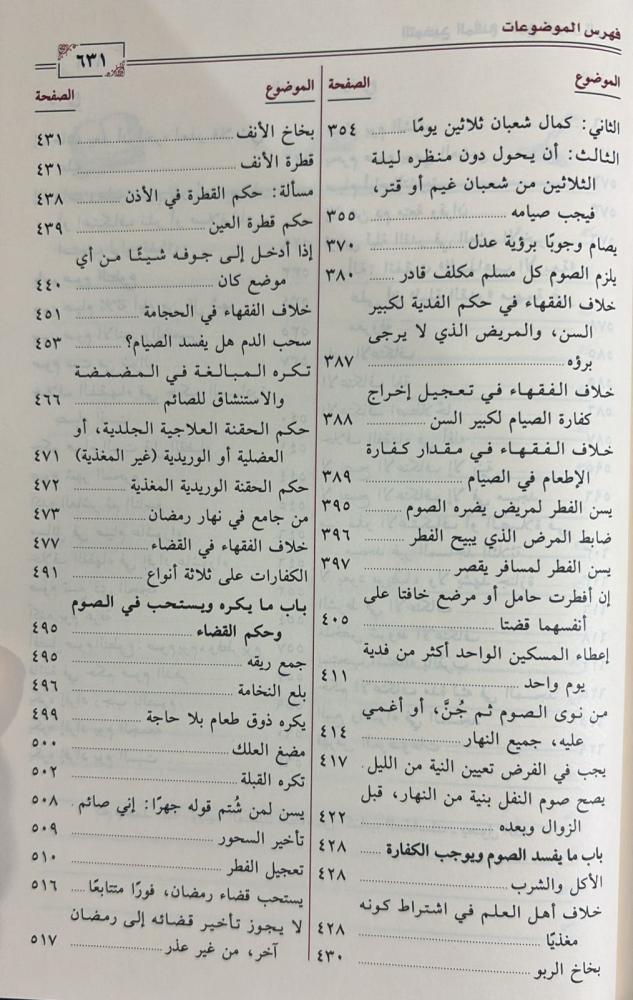 فهرس الموضوعات
٦٣١
الموضوع الصفحة
الثاني: كمال شعبان ثلاثين يومًا ........ ٣٥٤
الثالث: أن يحول دون منظره ليلة
الثلاثين من شعبان غيم أو قتر،
فيجب صيامه ........ ٣٥٥
يصام وجوبًا برؤية عدل ........ ٣٧٠
يلزم الصوم كل مسلم مكلف قادر ........ ٣٨٠
خلاف الفقهاء في حكم الفدية لكبير
السن، والمريض الذي لا يرجى
برؤه ........ ٣٨٧
خلاف الفقهاء في تعجيل إخراج
كفارة الصيام لكبير السن ........ ٣٨٨
خلاف الفقهاء في مقدار كفارة
الإطعام في الصيام ........ ٣٨٩
يسن الفطر لمريض يضره الصوم ........ ٣٩٥
ضابط المرض الذي يبيح الفطر ........ ٣٩٦
يسن الفطر لمسافر يقصر ........ ٣٩٧
إن أفطرت حامل أو مرضع خافتا على
أنفسهما قضتا ........ ٤٠٥
إعطاء المسكين الواحد أكثر من فدية
يوم واحد ........ ٤١١
من نوى الصوم ثم جُنَّ، أو أغمي
عليه، جميع النهار ........ ٤١٤
يجب في الفرض تعيين النية من الليل . ٤١٧
يصح صوم النفل بنية من النهار، قبل
الزوال وبعده ........ ٤٢٢
باب ما يفسد الصوم ويوجب الكفارة ..... ٤٢٨
الأكل والشرب ........ ٤٢٨
خلاف أهل العلم في اشتراط كونه
مغذيًا ........ ٤٢٨
بخاخ الربو ........ ٤٣٠
الموضوع الصفحة
بخاخ الأنف ........ ٤٣١
قطرة الأنف ........ ٤٣١
مسألة: حكم القطرة في الأذن ........ ٤٣٨
حكم قطرة العين ........ ٤٣٩
إذا أدخل إلى جوفه شيئًا من أي
موضع كان ........ ٤٤٠
خلاف الفقهاء في الحجامة ........ ٤٥١
سحب الدم هل يفسد الصيام؟ ........ ٤٥٣
تكره المبالغة في المضمضة
والاستنشاق للصائم ........ ٤٦٦
حكم الحقنة العلاجية الجلدية، أو
العضلية أو الوريدية (غير المغذية) ٤٧١
حكم الحقنة الوريدية المغذية ........ ٤٧٢
من جامع في نهار رمضان ........ ٤٧٣
خلاف الفقهاء في القضاء ........ ٤٧٧
الكفارات على ثلاثة أنواع ........ ٤٩١
باب ما يكره ويستحب في الصوم
وحكم القضاء ........ ٤٩٥
جمع ريقه ........ ٤٩٥
بلع النخامة ........ ٤٩٦
يكره ذوق طعام بلا حاجة ........ ٤٩٩
مضغ العلك ........ ٥٠٠
تكره القبلة ........ ٥٠٢
يسن لمن شُتم قوله جهرًا: إني صائم . ٥٠٨
تأخير السحور ........ ٥٠٩
تعجيل الفطر ........ ٥١٠
يستحب قضاء رمضان، فورًا متتابعًا .... ٥١٦
لا يجوز تأخير قضائه إلى رمضان
آخر، من غير عذر ........ ٥١٧